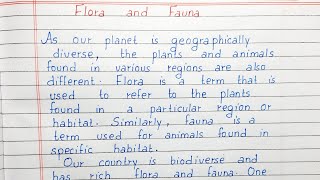 Flora and Fauna
As our planet is geographically
diverse, the plants and animals
found in various regions are also
different. Flora is a term that is
used to refer to the plants
found in a particular region or
habitat. Similarly, fauna is a
term used for animals found in
specific habitat.
Our country is biodiverse and
has rich flora and fauna. One